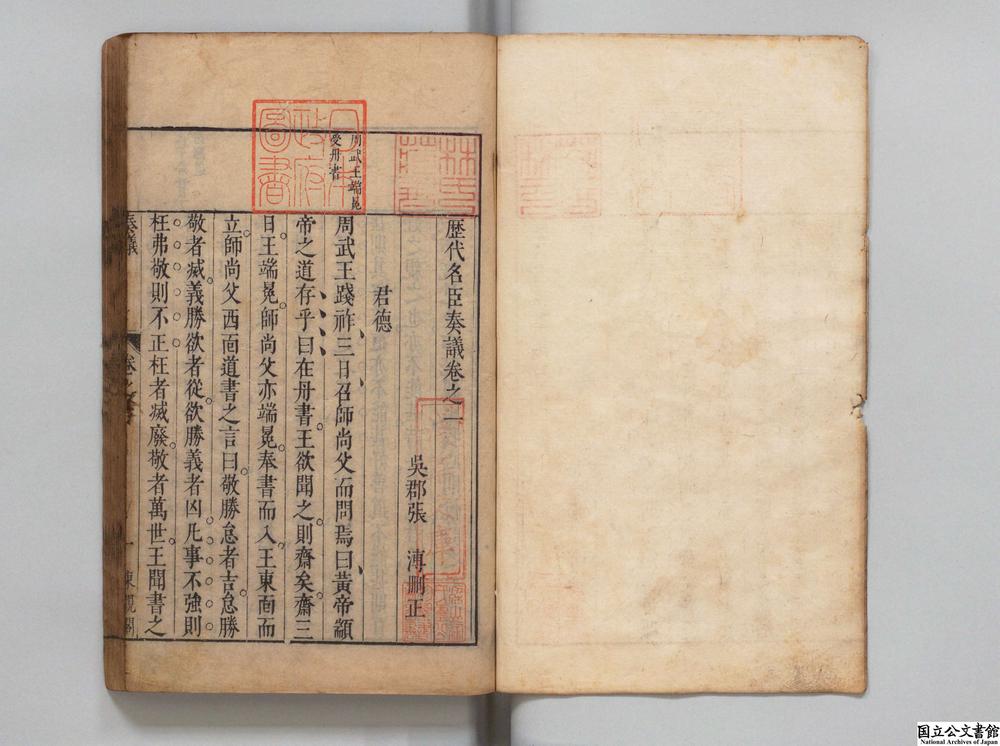 歷代名臣奏議卷之一
吳郡張　溥刪正
君德
周武王端冕
受丹書
周武王踐祚三日召師尚父而問焉曰黃帝顓
帝之道存乎曰在丹書王欲聞之則齋矣齋三
日王端冕師尚父亦端冕奉書而入王東面而
立師尚父西面道書之言曰敬勝怠者吉怠勝
敬者滅義勝欲者從欲勝義者凶凡事不強則
枉弗敬則不正枉者滅廢敬者萬世王聞書之
奏議
卷之一
一
東觀閣
日本
政府
圖書
林氏
藏書
国立公文書館
National Archives of Japan